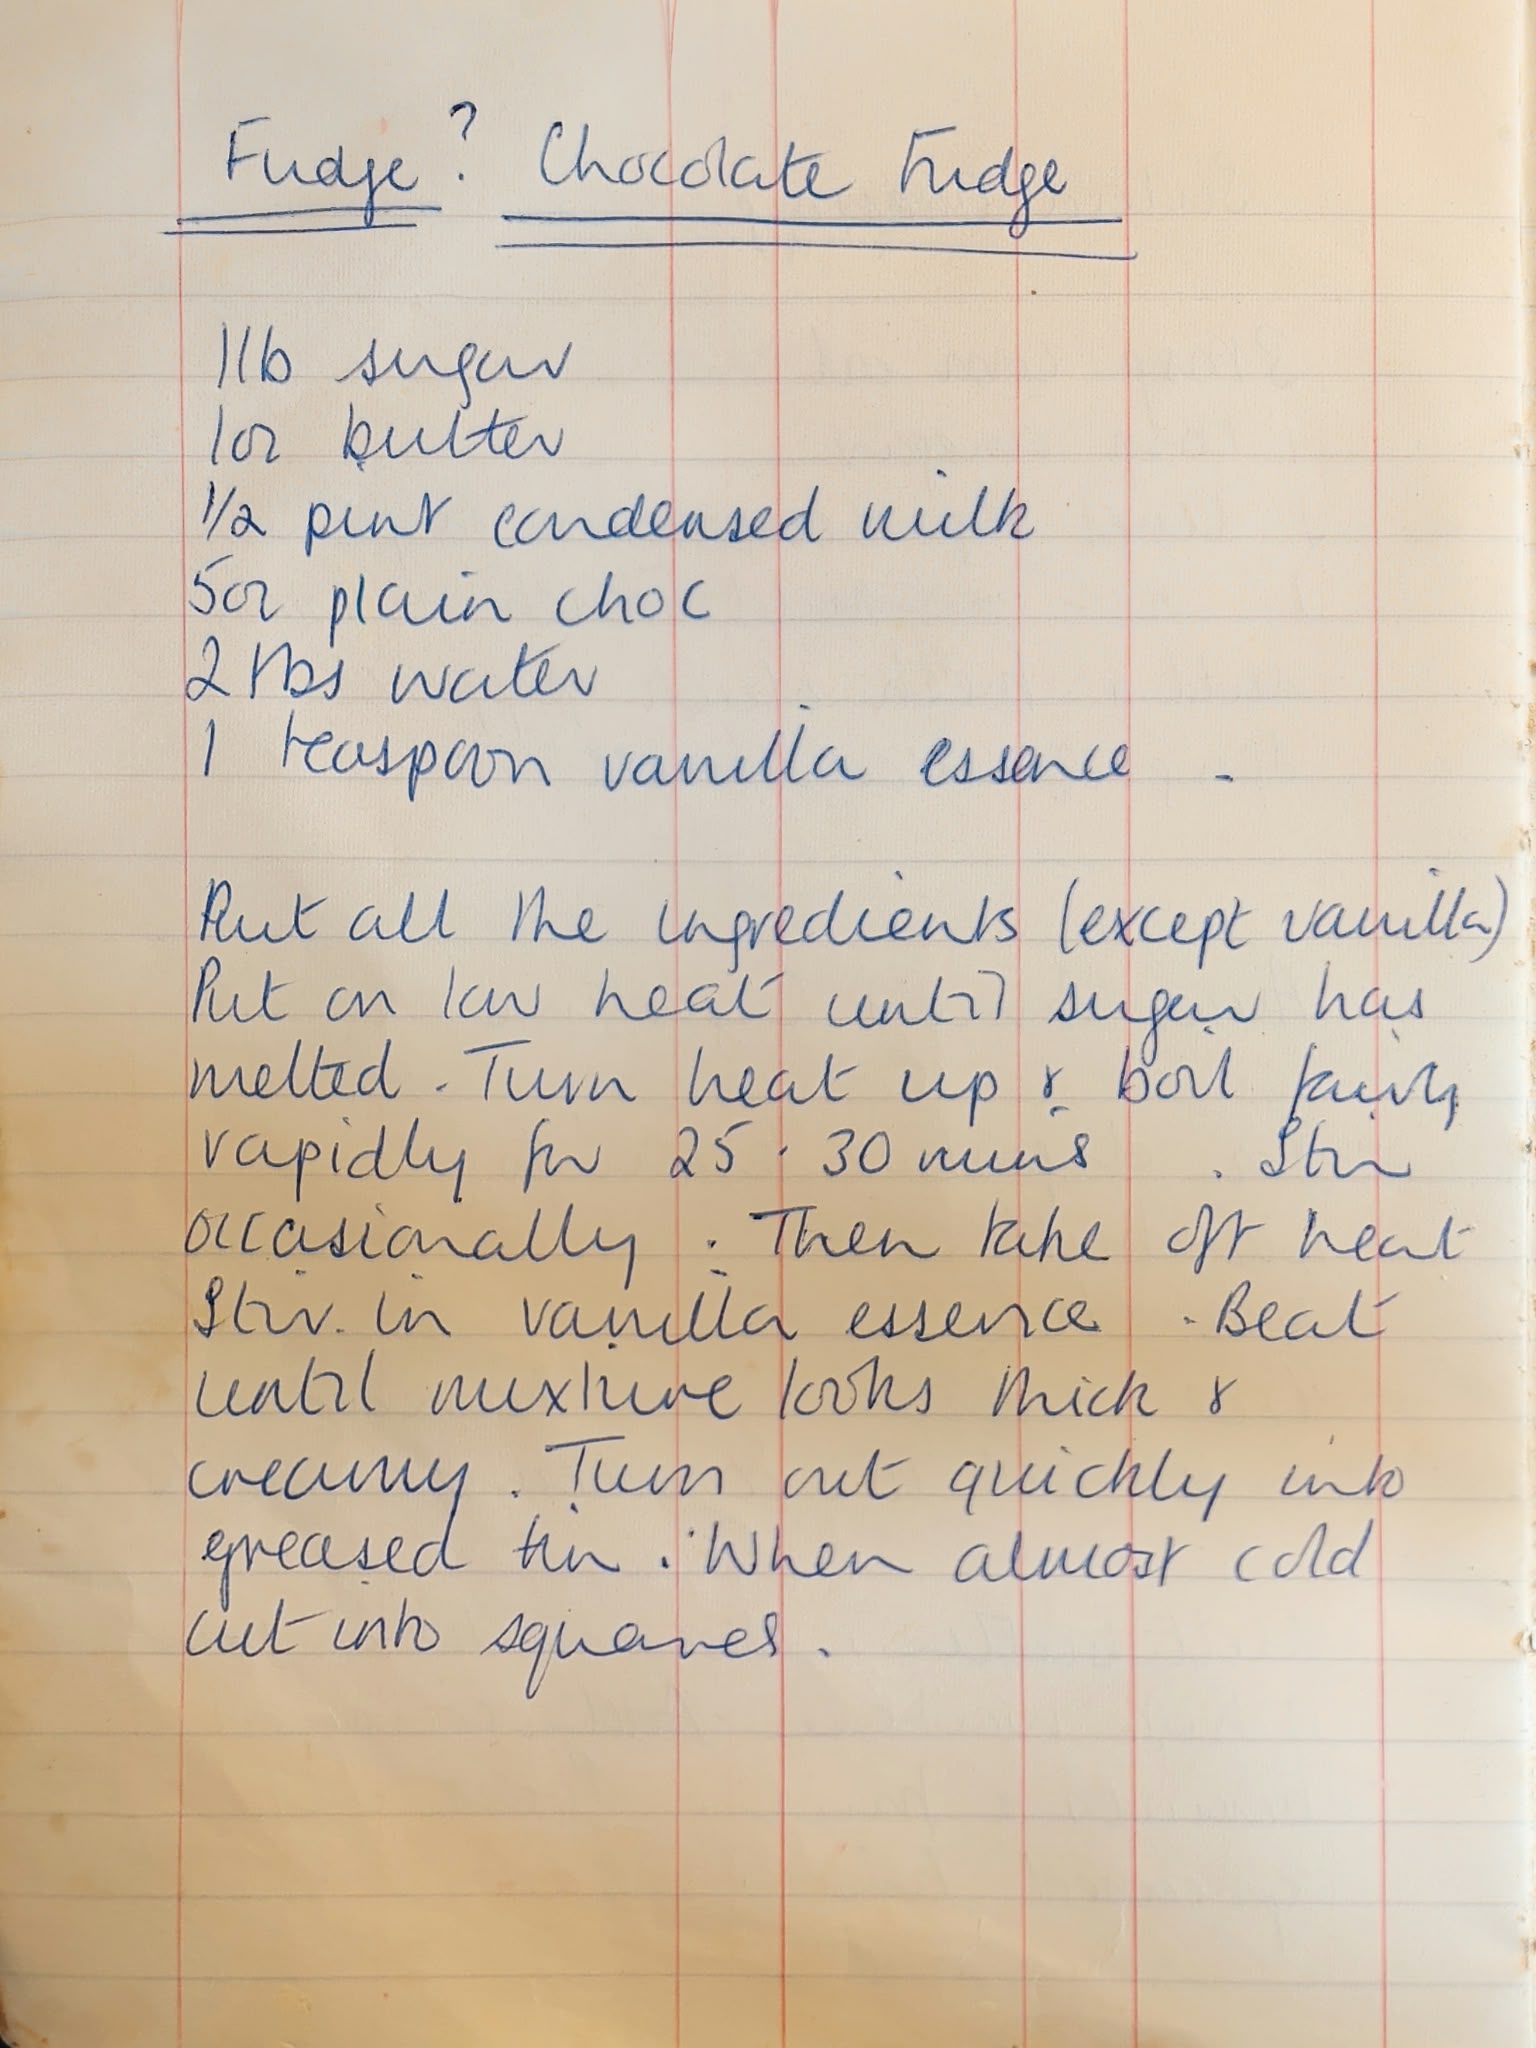 Fudge? Chocolate Fudge
1lb sugar
1oz butter
1/2 pint condensed milk
5oz plain choc
2 tbs water
1 teaspoon vanilla essence -
Put all the ingredients (except vanilla)
Put on low heat until sugar has
melted. Turn heat up & boil fairly
rapidly for 25 - 30 mins . Stir
occasionally. Then take off heat
Stir in vanilla essence. Beat
until mixture looks thick &
creamy. Turn out quickly into
greased tin. When almost cold
cut into squares.